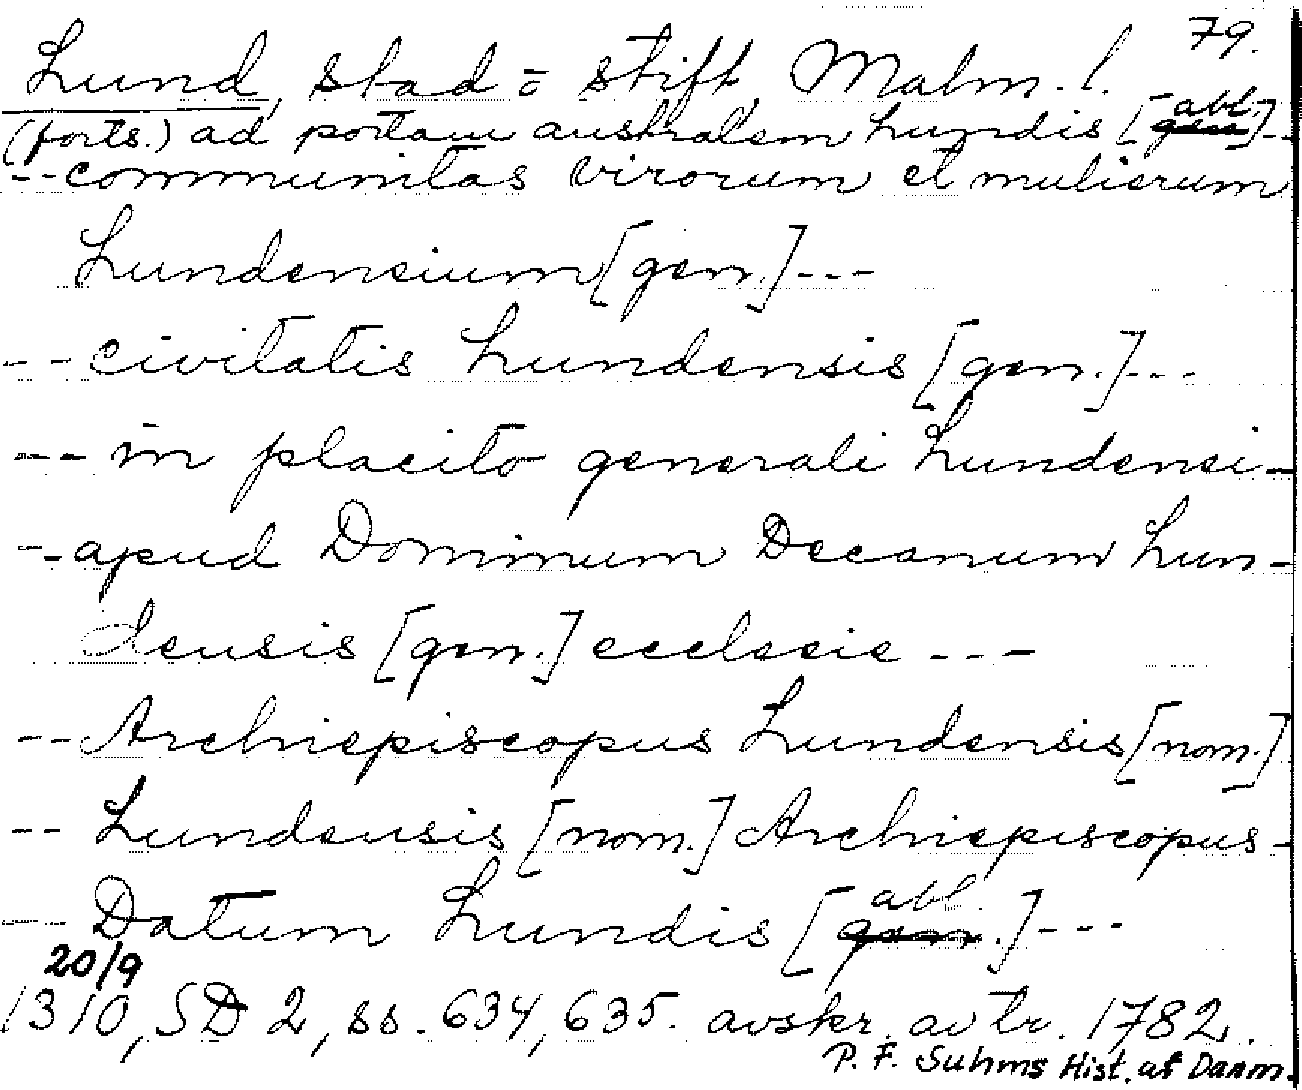 79.
Lund, stad o stift, Malm. l.
(forts.) ad portam australem Lundis [gen abl.]--
--communitas virorum et mulierum
Lundensium [gen.]---
--civitatis Lundensis [gen.]---
--in placito generali Lundensi-
--apud Dominum Decanum Lun-
densis [gen.] ecclesie ---
--Archiepiscopus Lundensis [nom.]
-- Lundensis [nom.] Archiepiscopus-
--- Datum Lundis [gen. abl.]---
20/9
1310, SD 2, ss. 634, 635. avskr. av tr. 1782.
P. F. Suhms Hist. af Danm.